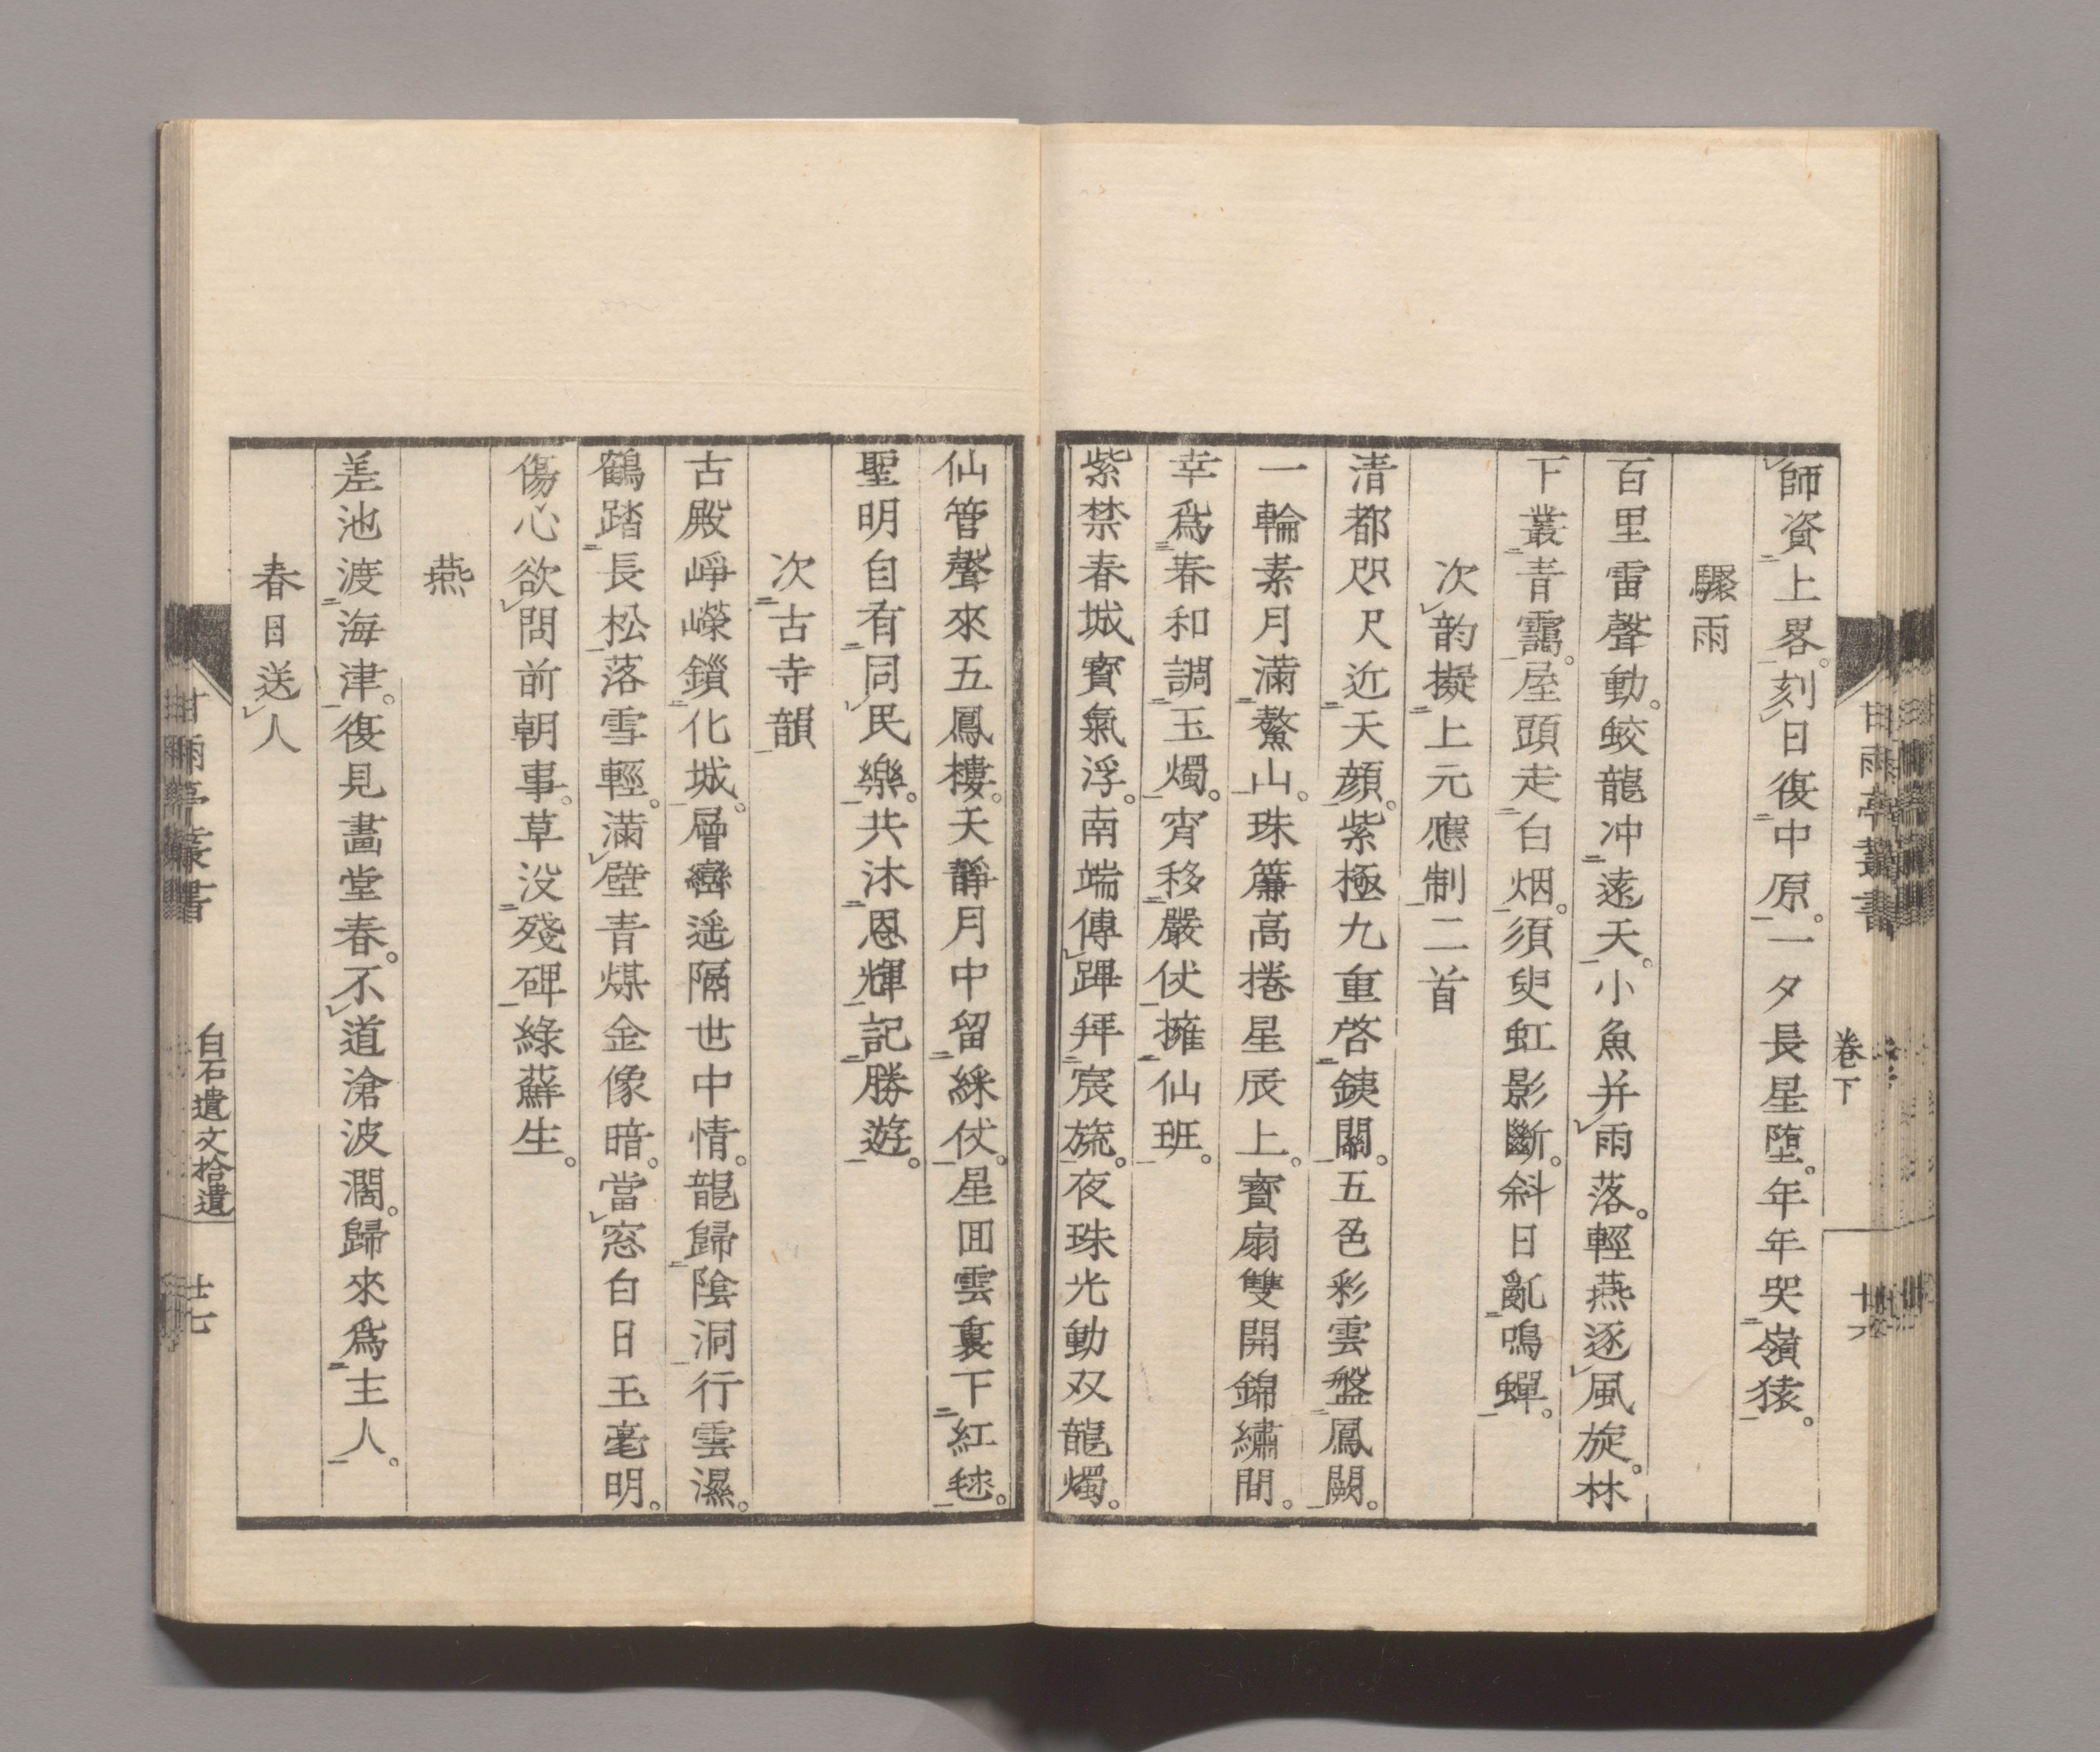 師資上畧。刻日復中原。一夕長星堕。年年哭嶺猿。
驟雨
百里雷聲動。蛟龍冲遠天。小魚并雨落。輕燕逐風旋。林
下叢青靄。屋頭走白烟。須臾虹影斷。斜日亂鳴蟬。
次韵擬上元應制二首
清都咫尺近天顔。紫極九重啓鐵關。五色彩雲盤鳳闕。
一輪素月滿鰲山。珠簾高捲星辰上。寳扇雙開錦繡間。
幸爲春和調玉燭。宵移嚴仗擁仙班。
紫禁春城寳氣浮。南端傳蹕拜宸旒。夜珠光動双龍燭。
甘雨亭叢書
卷下
廿六
仙管聲來五鳳樓。天靜月中留綵仗。星囬雲裏下紅毬。
聖明自有同民樂。共沐恩輝記勝遊。
次古寺韻
古殿崢嶸鎖化城。層巒遥隔世中情。龍歸陰洞行雲濕。
鶴踏長松落雪輕。滿壁青煤金像暗。當窓白日玉毫明。
傷心欲問前朝事。草没殘碑綠蘚生。
燕
差池渡海津。復見畫堂春。不道滄波濶。歸來爲主人。
春日送人
甘雨亭叢書
白石遺文拾遺
廿七